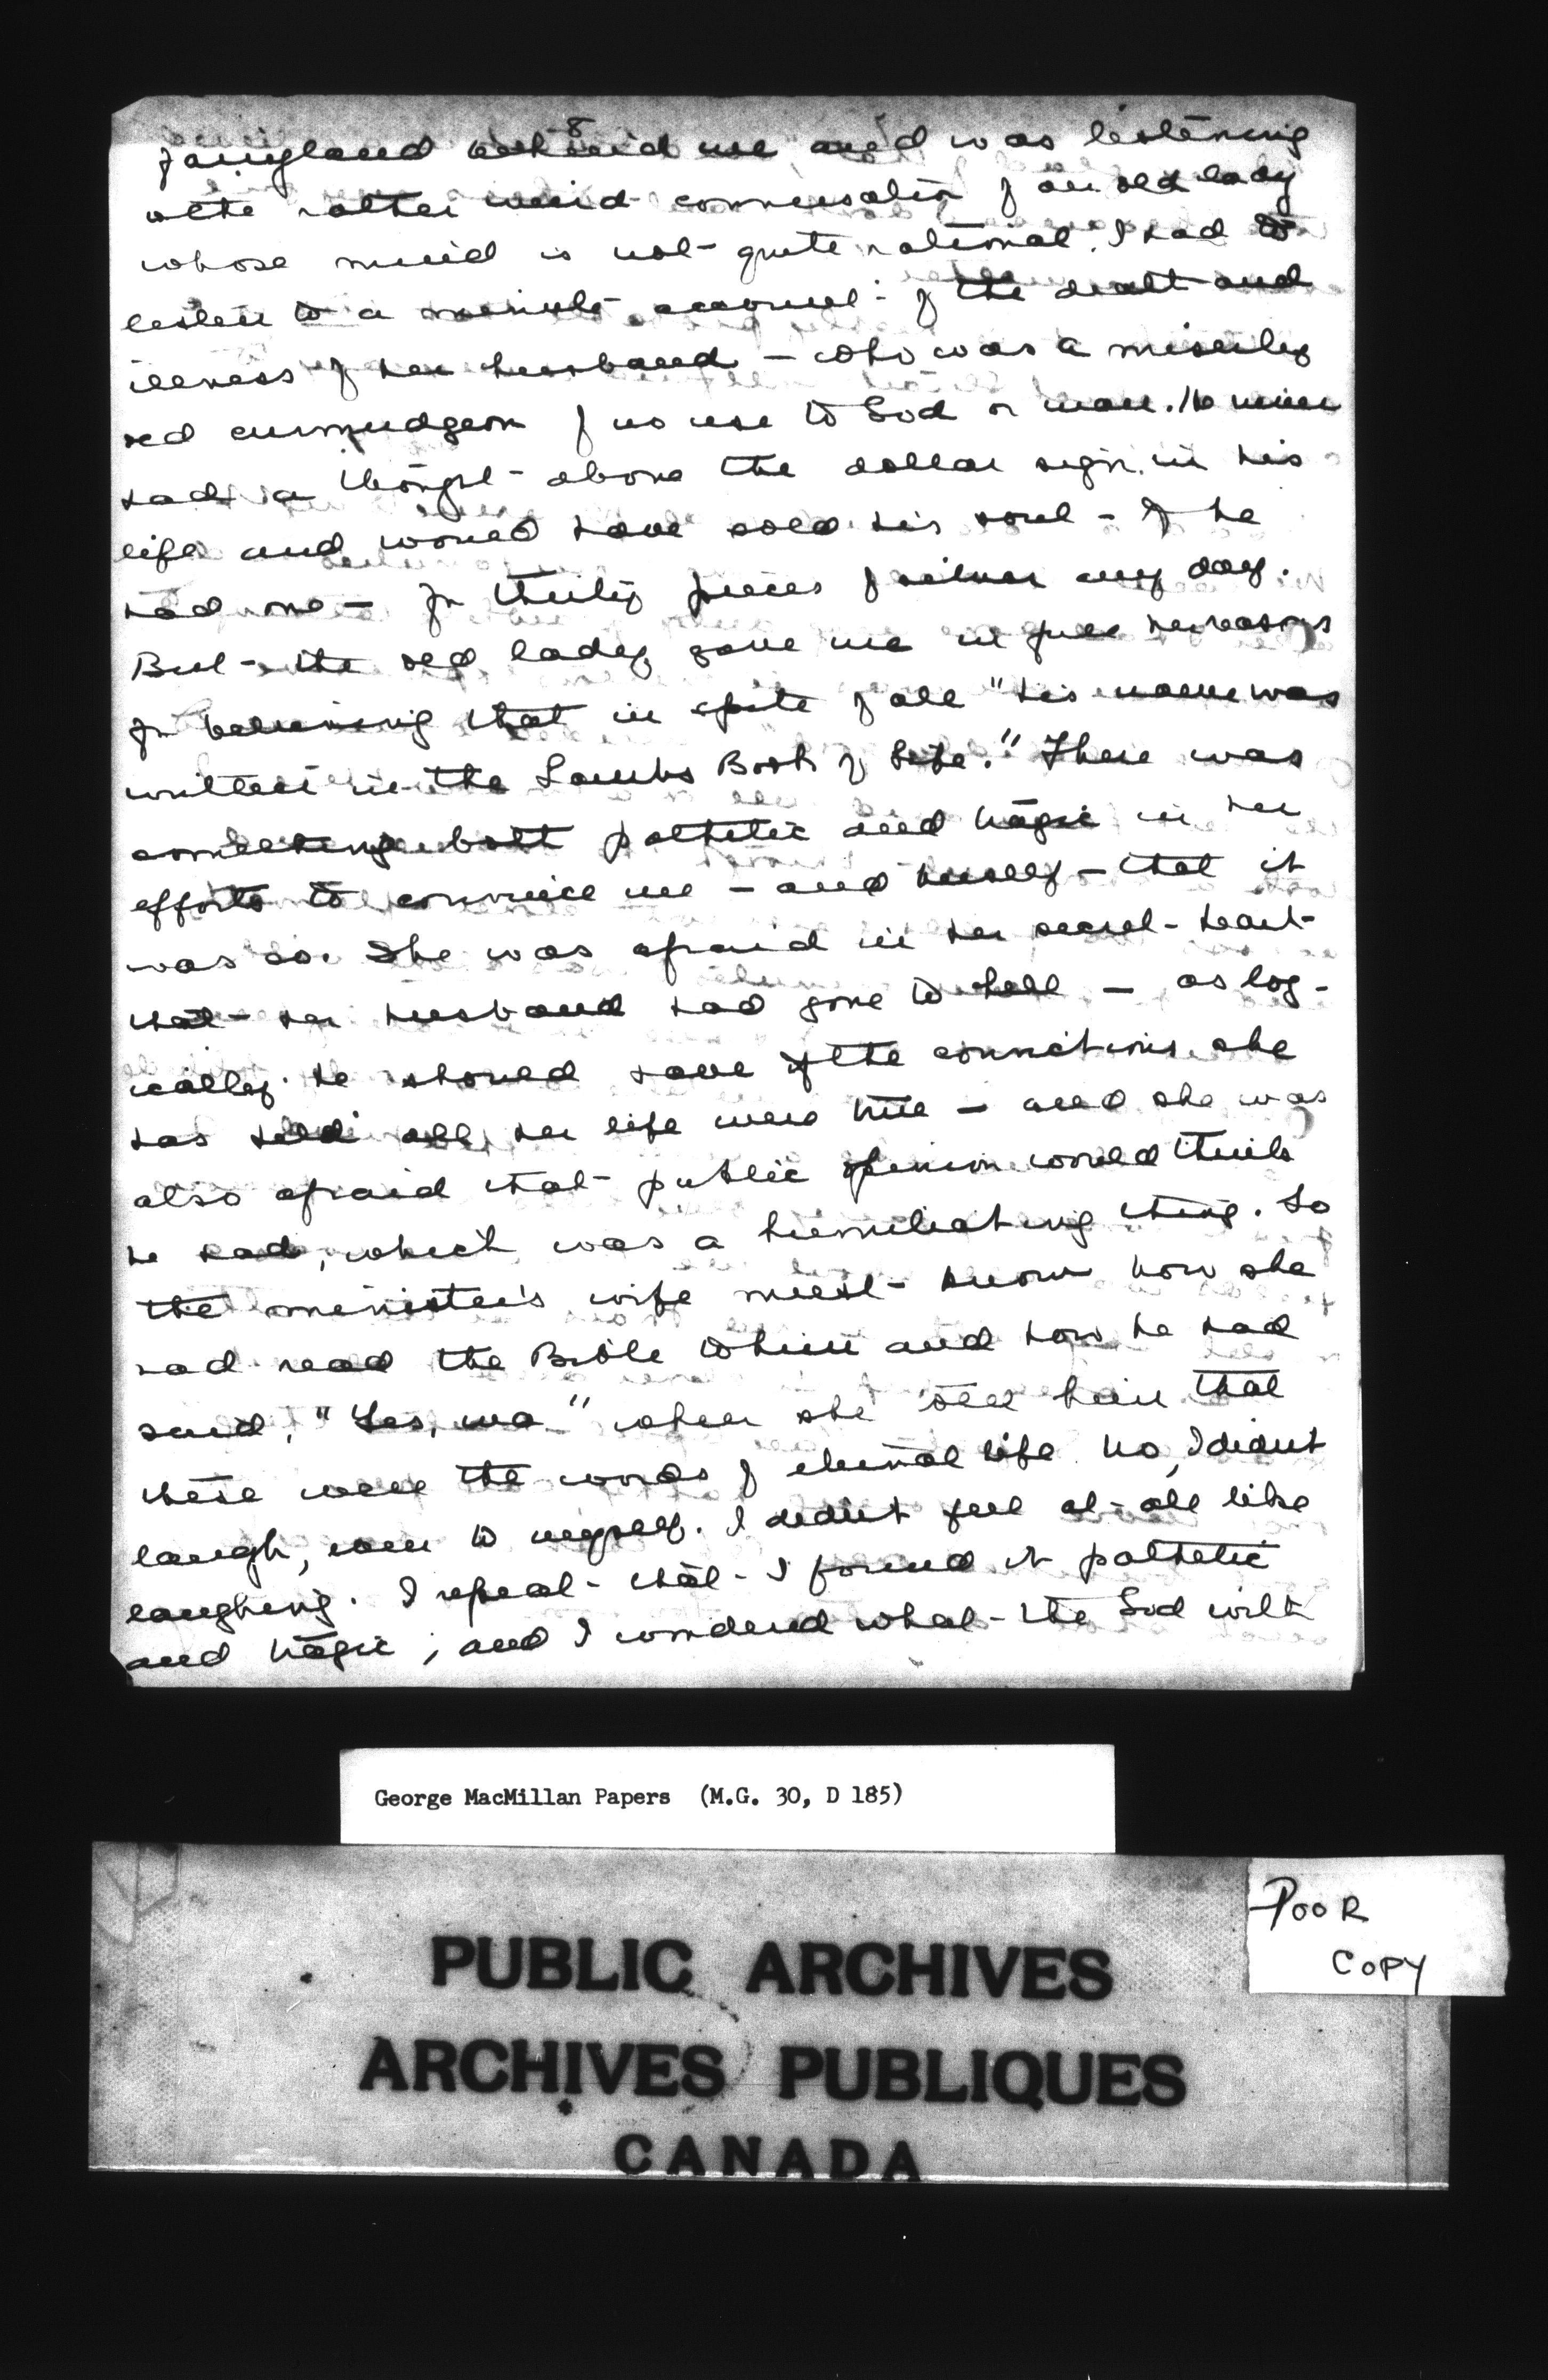 8
fairyland behind me and was listening
to the rather weird conversation of an old lady
whose mind is not quite rational. I had to
listen to a minute account of the death and
illness of her husband — who was a miserly
old curmudgeon of no use to God or man. He never
had a thought above the dollar sign in his
life and would have sold his soul — if he
had one — for thirty pieces of silver any day.
But the old lady gave me in full her reasons
for believing that in spite of all "his name was
written in the Lambs Book of Life." There was
something both pathetic and tragic in her
efforts to convince me — and herself — that it
was so. She was afraid in her secret heart
that her husband had gone to hell — as log-
ically he should have if the convictions she
has held all her life were true — and she was
also afraid that public opinion would think
he had, which was a humiliating thing. So
the minister's wife must know how she
had read the Bible to him and how he had
said, "Yes, ma" when she told him that
these were the words of eternal life. No, I didn't
laugh, even to myself. I didn't feel at all like
laughing. I repeat that I found it pathetic
and tragic; and I wondered what the God with
George MacMillan Papers (M.G. 30, D 185)
POOR
COPY
PUBLIC ARCHIVES
ARCHIVES PUBLIQUES
CANADA